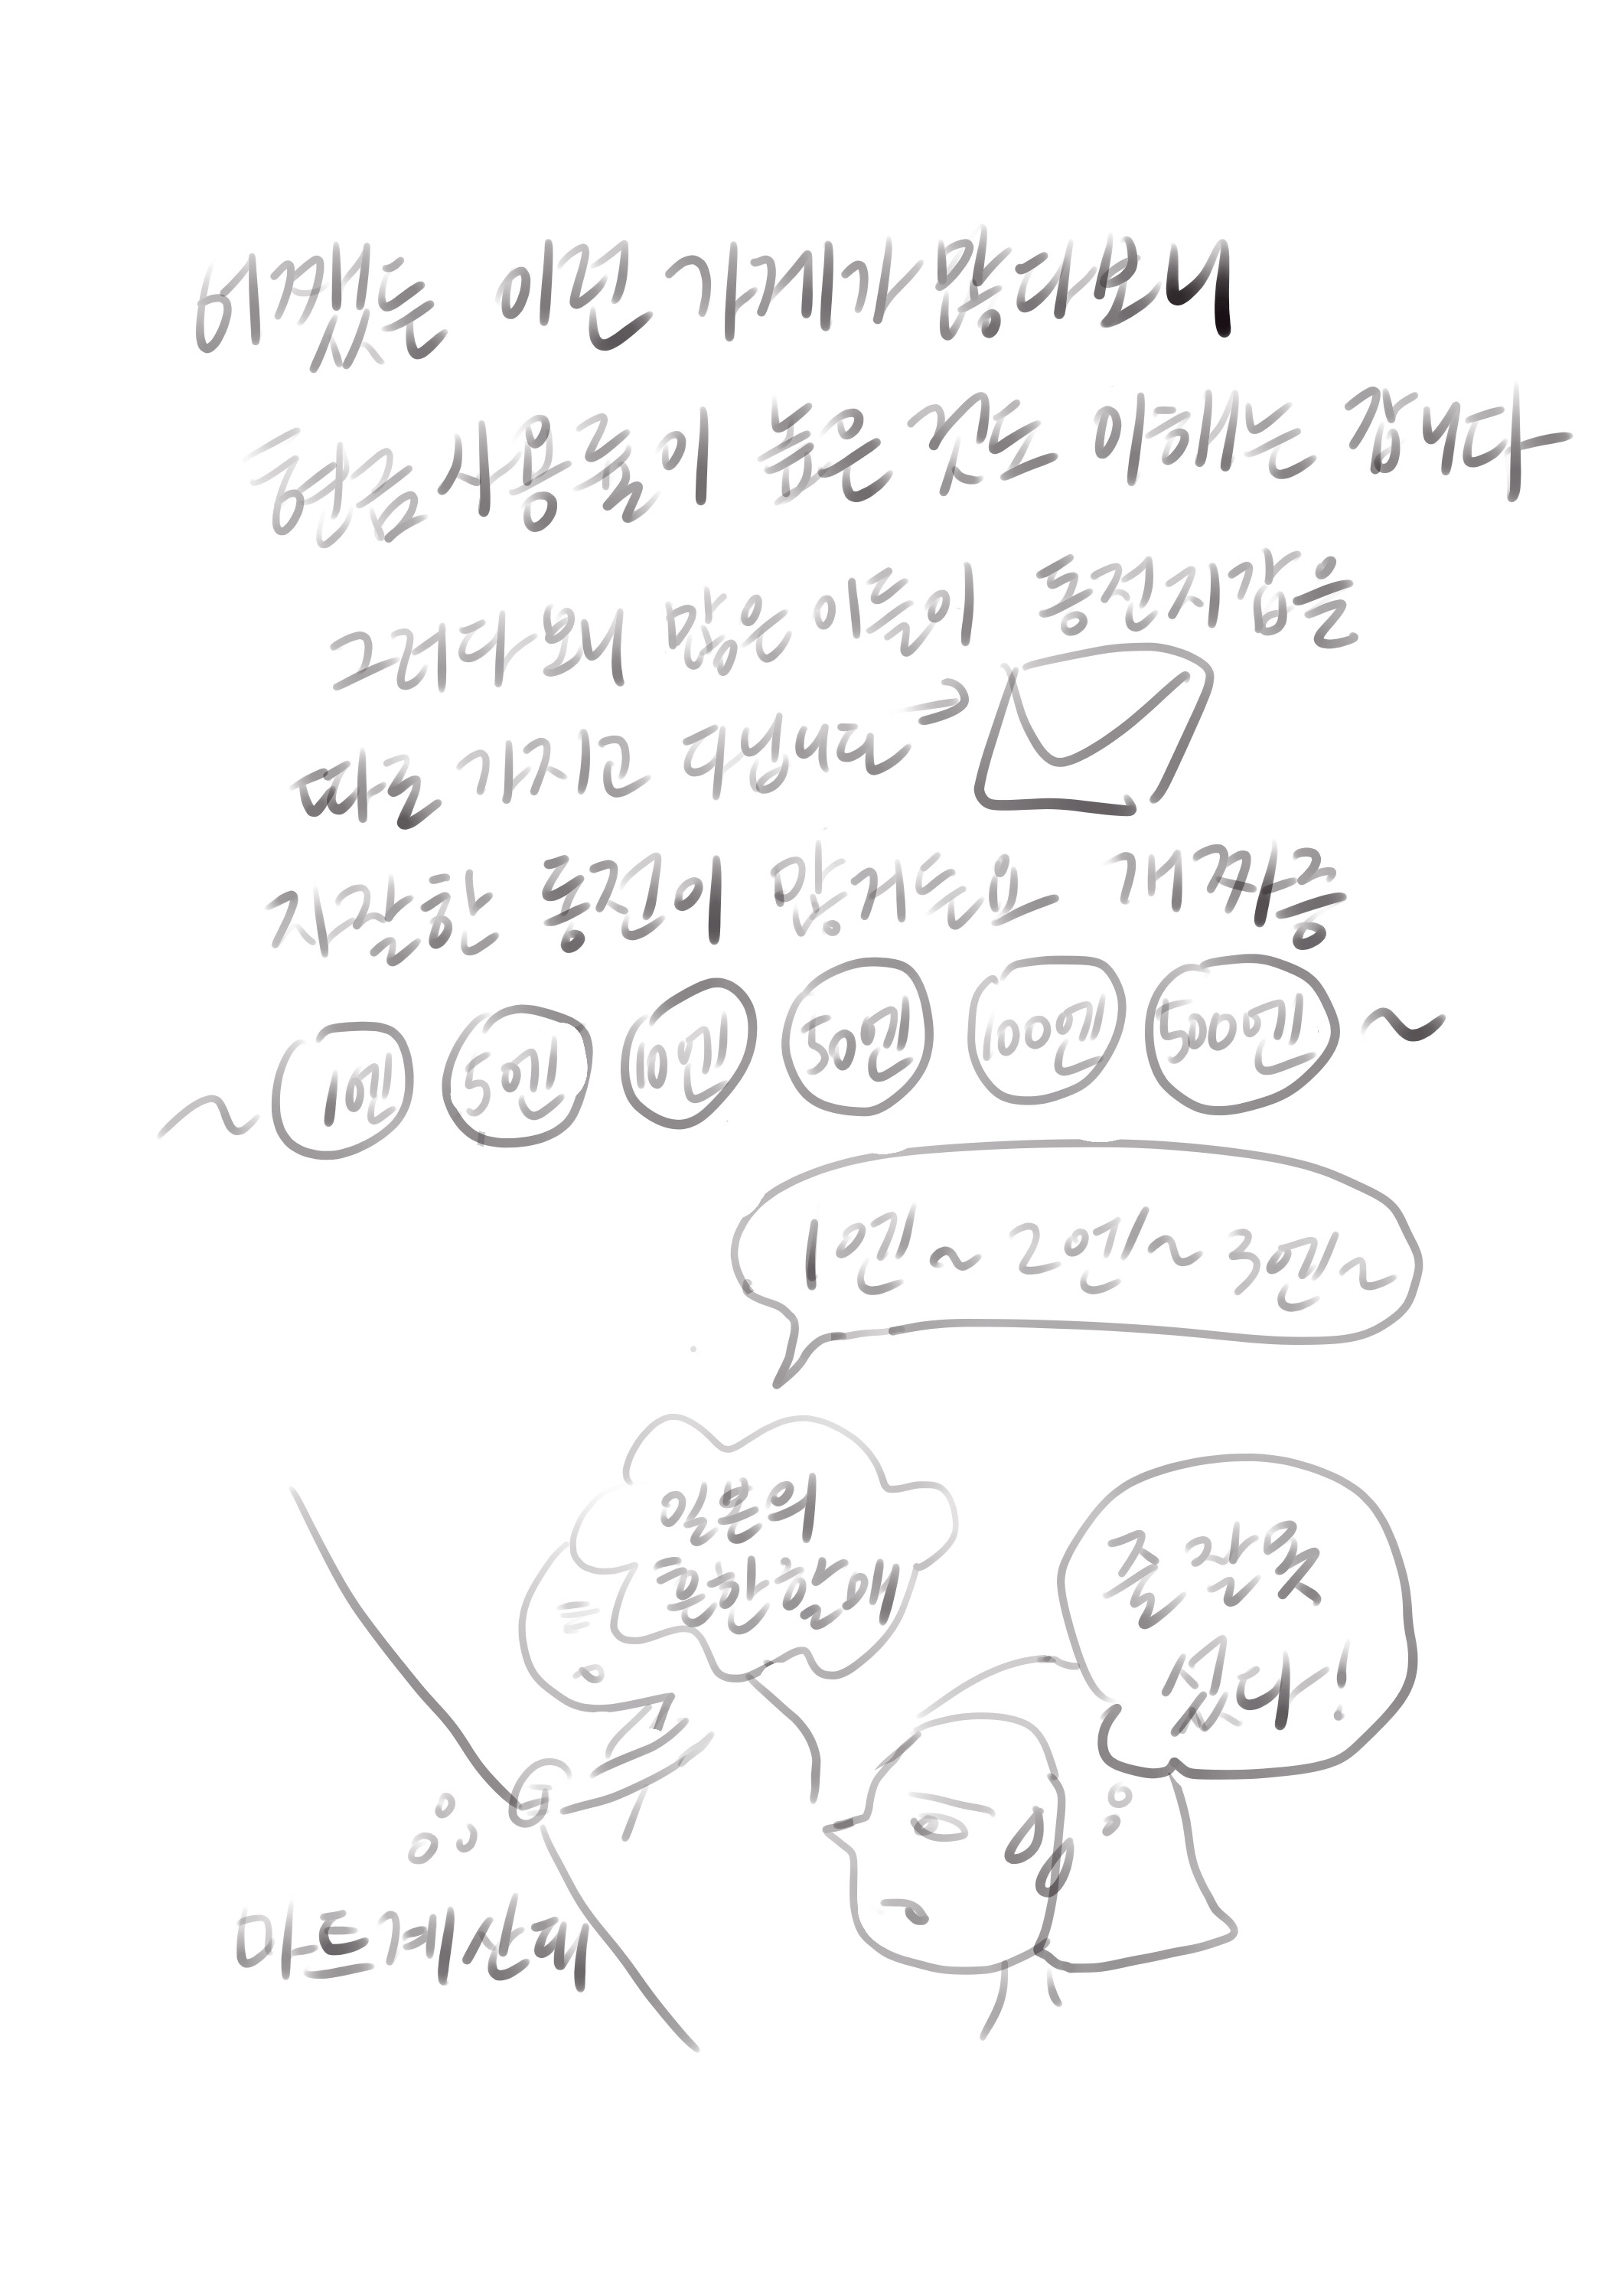 어쨌든 이런 가게가 많다보니
현금 사용률이 높은 것도 이해는 갑니다
그러다보니 많은 이들이 동전지갑을
따로 가지고 다닙니다
자잘한 동전이 많거든요 거짓사용
1엔 5엔 10엔 50엔 100엔 500엔
1엔~ 2엔~ 3엔~
일본의
흔한 할매
줄 잘못
섰다!
마트계산대